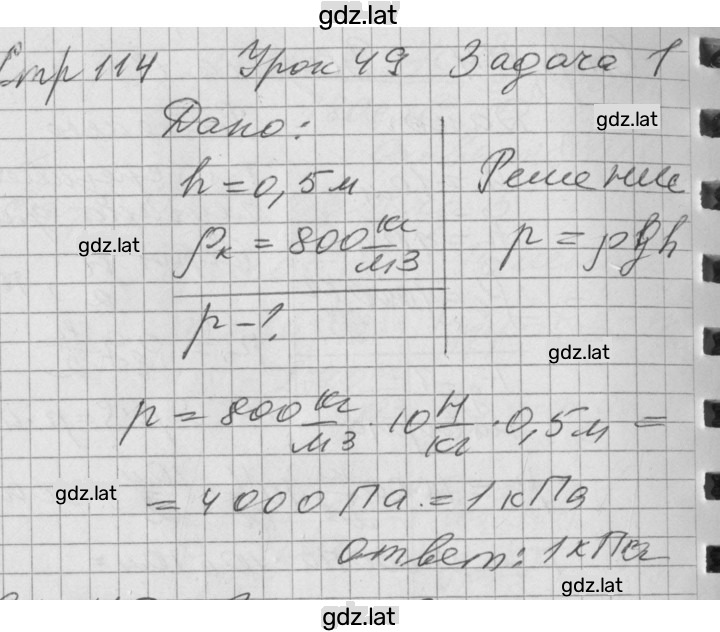 gdz.lat
Стр 114 Урок 49 Задача 1
gdz.lat
Дано:
h = 0,5 м
Решение
ρк = 800 кг/м3
p = ρgh
gdz.lat
p - ?
gdz.lat
p = 800 кг/м3 · 10 Н/кг · 0,5 м =
gdz.lat
= 4000 Па = 1 кПа
Ответ: 1 кПа
gdz.lat
gdz.lat